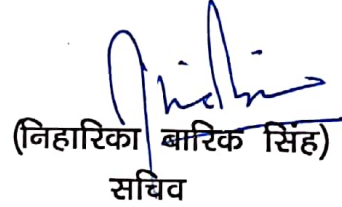 (निहारिका बारिक सिंह)
सचिव